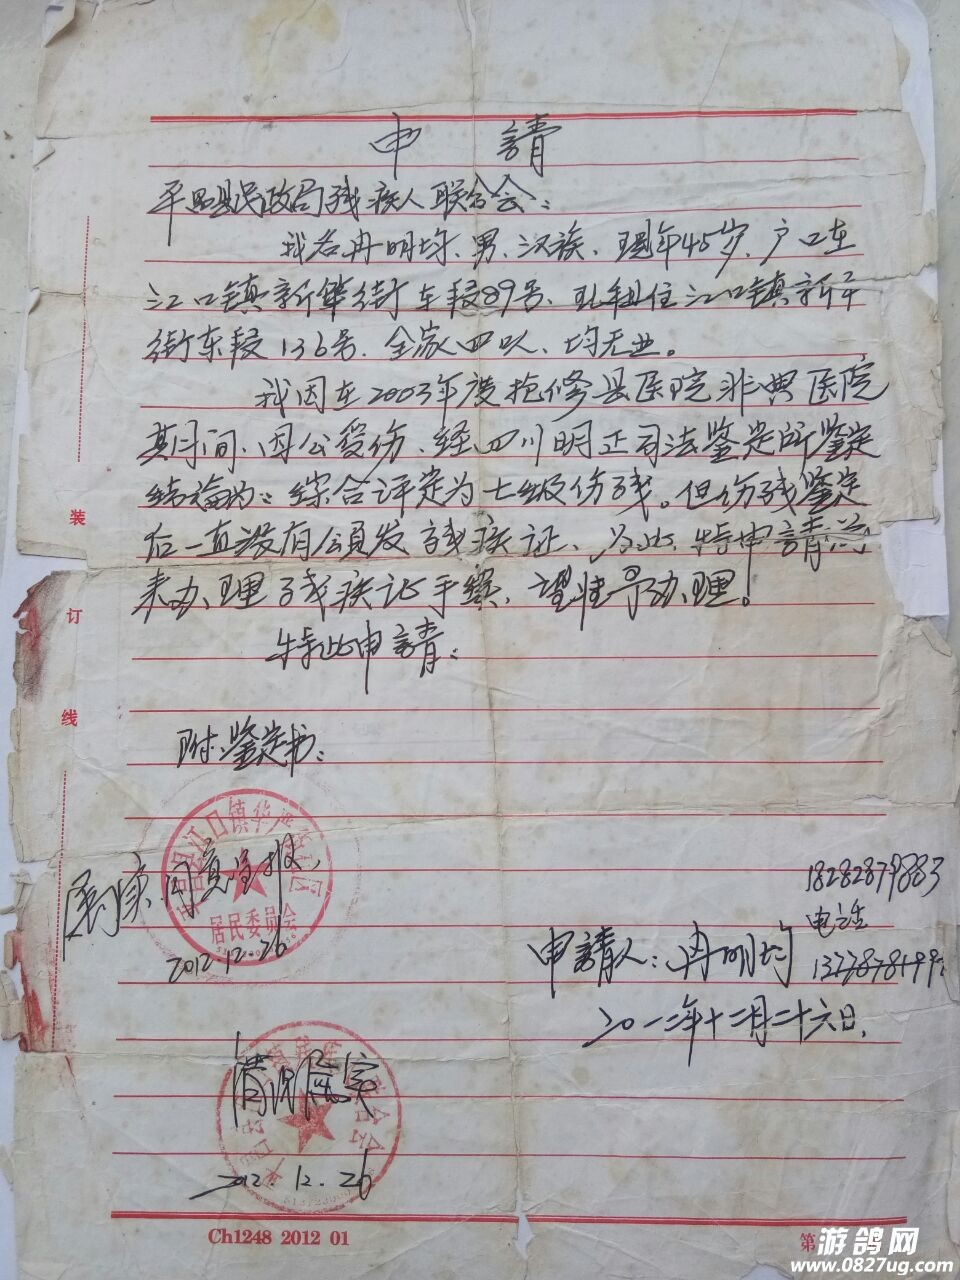 申 請
平昌县民政局残疾人联合会：
我名冉明均、男、汉族、现年45岁、户口在
江口镇新华街东段89号、现租住江口镇新华
街东段136号、全家四人、均无业。
我因在2003年度抢修县医院非典医院
期间、因公受伤、经四川明正司法鉴定所鉴定
结論为：综合评定为七级伤残。但伤残鉴定
后一直没有領发残疾证、为此、特申請
来办理残疾证手续、望准予办理！
特此申請：
附：鉴定书：
平昌县江口镇华严 社区
居民委员会
属实
2012.12.26
18282879883
电话
申請人：冉明均
二〇一二年十二月二十六日
情况属实
2012.12.26
装
订
线
Ch1248 2012 01
第
游鸽网
www.0827ug.com